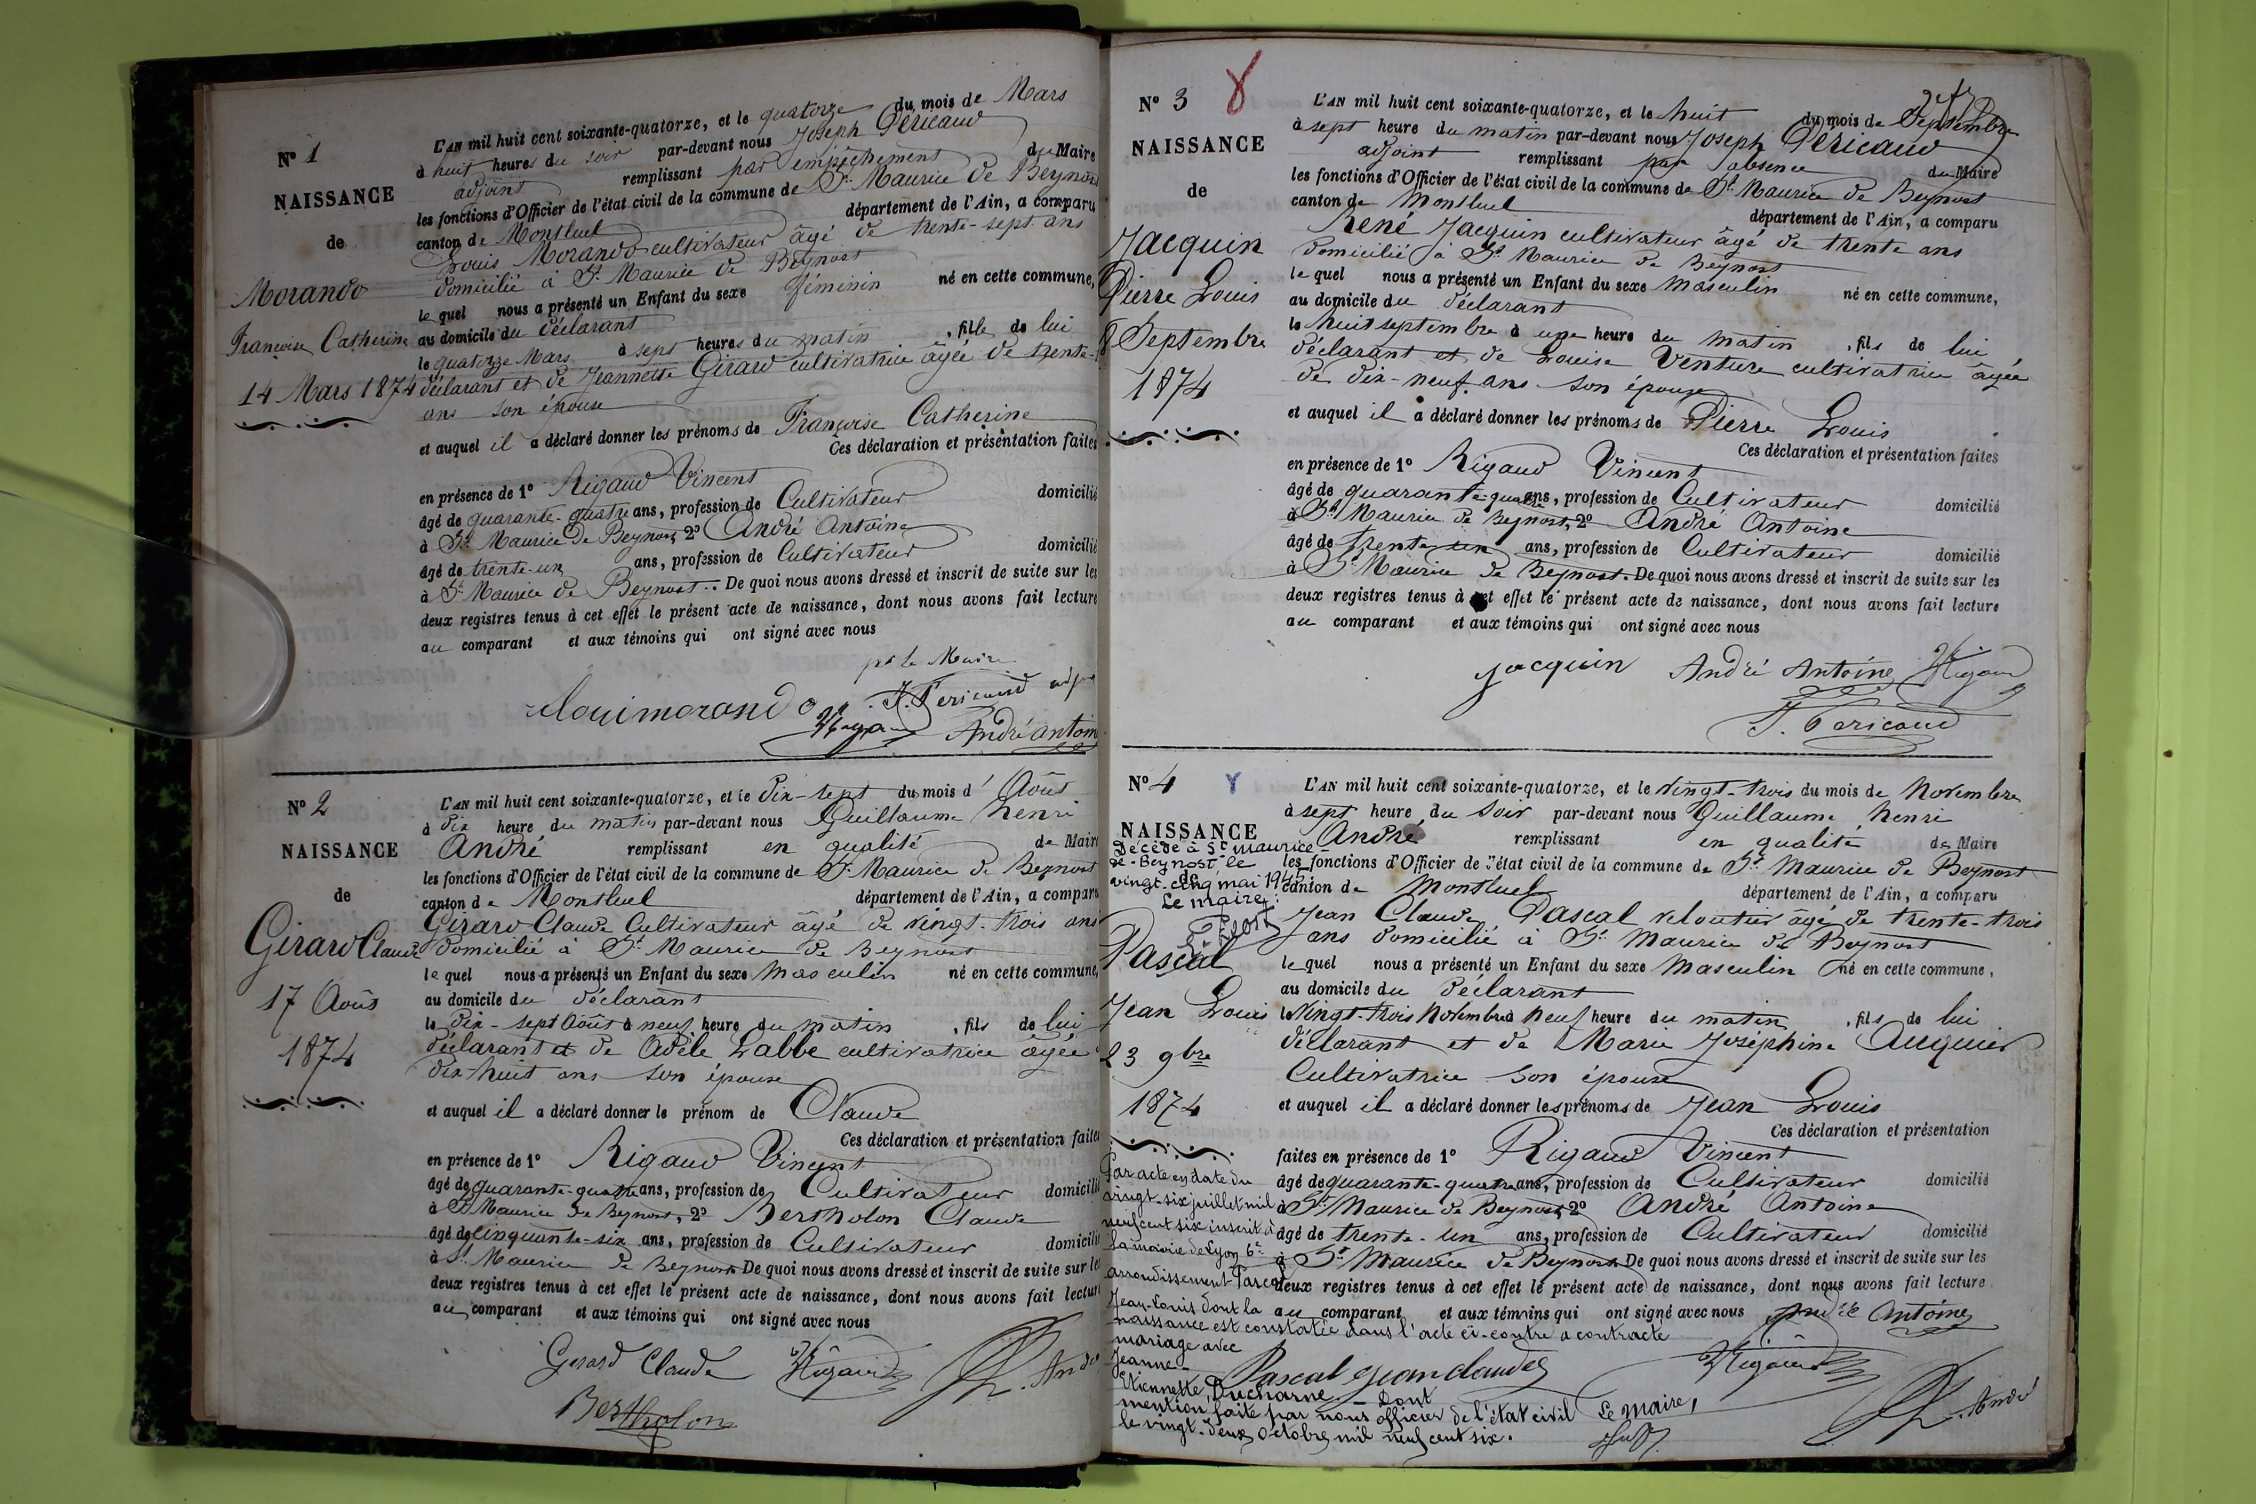 N° 1
NAISSANCE
de
Morand
Françoise Catherine
14 Mars 1874
L'AN mil huit cent soixante-quatorze, et le quatorze du mois de Mars
à huit heures du soir par-devant nous Joseph Péricaud
adjoint remplissant par empêchement du Maire
les fonctions d'Officier de l'état civil de la commune de St Maurice de Beynost
canton de Montluel département de l'Ain, a comparu
Louis Morand cultivateur âgé de trente-sept ans
domicilié à St Maurice de Beynost
le quel nous a présenté un Enfant du sexe féminin né en cette commune,
au domicile du déclarant
le quatorze Mars à sept heures du matin, fille de lui
déclarant et de Jeannette Girard cultivatrice âgée de trente-
ans son épouse
et auquel il a déclaré donner les prénoms de Françoise Catherine
Ces déclaration et présentation faites
en présence de 1° Rigaud Vincent
âgé de quarante-quatre ans, profession de Cultivateur domicilié
à St Maurice de Beynost, 2° André Antoine
âgé de trente-un ans, profession de Cultivateur domicilié
à St Maurice de Beynost. De quoi nous avons dressé et inscrit de suite sur les
deux registres tenus à cet effet le présent acte de naissance, dont nous avons fait lecture
au comparant et aux témoins qui ont signé avec nous
pr le Maire
Louimorand J. Pericaud adj
Rigaud André antoin
N° 2
NAISSANCE
de
Girard Claude
17 Août
1874
L'AN mil huit cent soixante-quatorze, et le dix-sept du mois d'Août
à dix heure du matin par-devant nous Guillaume henri
André remplissant en qualité de Maire
les fonctions d'Officier de l'état civil de la commune de St Maurice de Beynost
canton de Montluel département de l'Ain, a comparu
Girard Claude Cultivateur âgé de vingt-trois ans
domicilié à St Maurice de Beynost
le quel nous a présenté un Enfant du sexe masculin né en cette commune,
au domicile du déclarant
le dix-sept Août à neuf heure du matin, fils de lui
déclarant et de Adèle Labbe cultivatrice âgée
dix-huit ans son épouse
et auquel il a déclaré donner le prénom de Claude
Ces déclaration et présentation faites
en présence de 1° Rigaud Vincent
âgé de quarante-quatre ans, profession de Cultivateur domicilié
à St Maurice de Beynost, 2° Bertholon Claude
âgé de cinquante-six ans, profession de Cultivateur domicilié
à St Maurice de Beynost De quoi nous avons dressé et inscrit de suite sur les
deux registres tenus à cet effet le présent acte de naissance, dont nous avons fait lecture
au comparant et aux témoins qui ont signé avec nous
Gerard Claude Rigaud André
Bertholon
N° 3 8
NAISSANCE
de
Jacquin
Pierre Louis
8 Septembre
1874
L'AN mil huit cent soixante-quatorze, et le huit du mois de Septembre
à sept heure du matin par-devant nous Joseph Péricaud
adjoint remplissant par absence du Maire
les fonctions d'Officier de l'état civil de la commune de St Maurice de Beynost
canton de Montluel département de l'Ain, a comparu
René Jacquin cultivateur âgé de trente ans
domicilié à St Maurice de Beynost
le quel nous a présenté un Enfant du sexe masculin né en cette commune,
au domicile du déclarant
le huit septembre à une heure du matin, fils de lui
déclarant et de Louise Venture cultivatrice âgée
de dix-neuf ans son épouse
et auquel il a déclaré donner les prénoms de Pierre Louis
Ces déclaration et présentation faites
en présence de 1° Rigaud Vincent
âgé de quarante-quatre ans, profession de Cultivateur domicilié
à St Maurice de Beynost, 2° André Antoine
âgé de trente-un ans, profession de Cultivateur domicilié
à St Maurice de Beynost. De quoi nous avons dressé et inscrit de suite sur les
deux registres tenus à cet effet le présent acte de naissance, dont nous avons fait lecture
au comparant et aux témoins qui ont signé avec nous
jacquin André Antoine Rigaud
J. Pericaud
N° 4
NAISSANCE
de
Décédé à St Maurice-
de-Beynost le
vingt-cinq mai 1945
Le maire:
Pascal
Jean Louis
23 9bre
1874
L'AN mil huit cent soixante-quatorze, et le vingt-trois du mois de Novembre
à sept heure du soir par-devant nous Guillaume henri
André remplissant en qualité de Maire
les fonctions d'Officier de l'état civil de la commune de St Maurice de Beynost
canton de Montluel département de l'Ain, a comparu
Jean Claude Pascal veloutier âgé de trente-trois
ans domicilié à St Maurice de Beynost
le quel nous a présenté un Enfant du sexe masculin né en cette commune,
au domicile du déclarant
le vingt-trois Novembre à neuf heure du matin, fils de lui
déclarant et de Marie Joséphine Auquier
Cultivatrice son épouse
et auquel il a déclaré donner les prénoms de Jean Louis
Ces déclaration et présentation
faites en présence de 1° Rigaud Vincent
âgé de quarante-quatre ans, profession de Cultivateur domicilié
à St Maurice de Beynost 2° André Antoine
âgé de trente-un ans, profession de Cultivateur domicilié
à St Maurice de Beynost De quoi nous avons dressé et inscrit de suite sur les
deux registres tenus à cet effet le présent acte de naissance, dont nous avons fait lecture
au comparant et aux témoins qui ont signé avec nous André Antoine
Pascal jeanclaude Rigaud André
Par acte en date du
vingt-six juillet mil
neuf cent six inscrit à
la mairie de Lyon 6e
arrondissement Pascal
Jean-Louis dont la
naissance est constatée dans l'acte ci-contre a contracté
mariage avec
Jeanne-
Etiennette Ducharne. Dont
mention faite par nous officier de l'état civil Le maire,
le vingt-deux octobre mil neuf cent six.